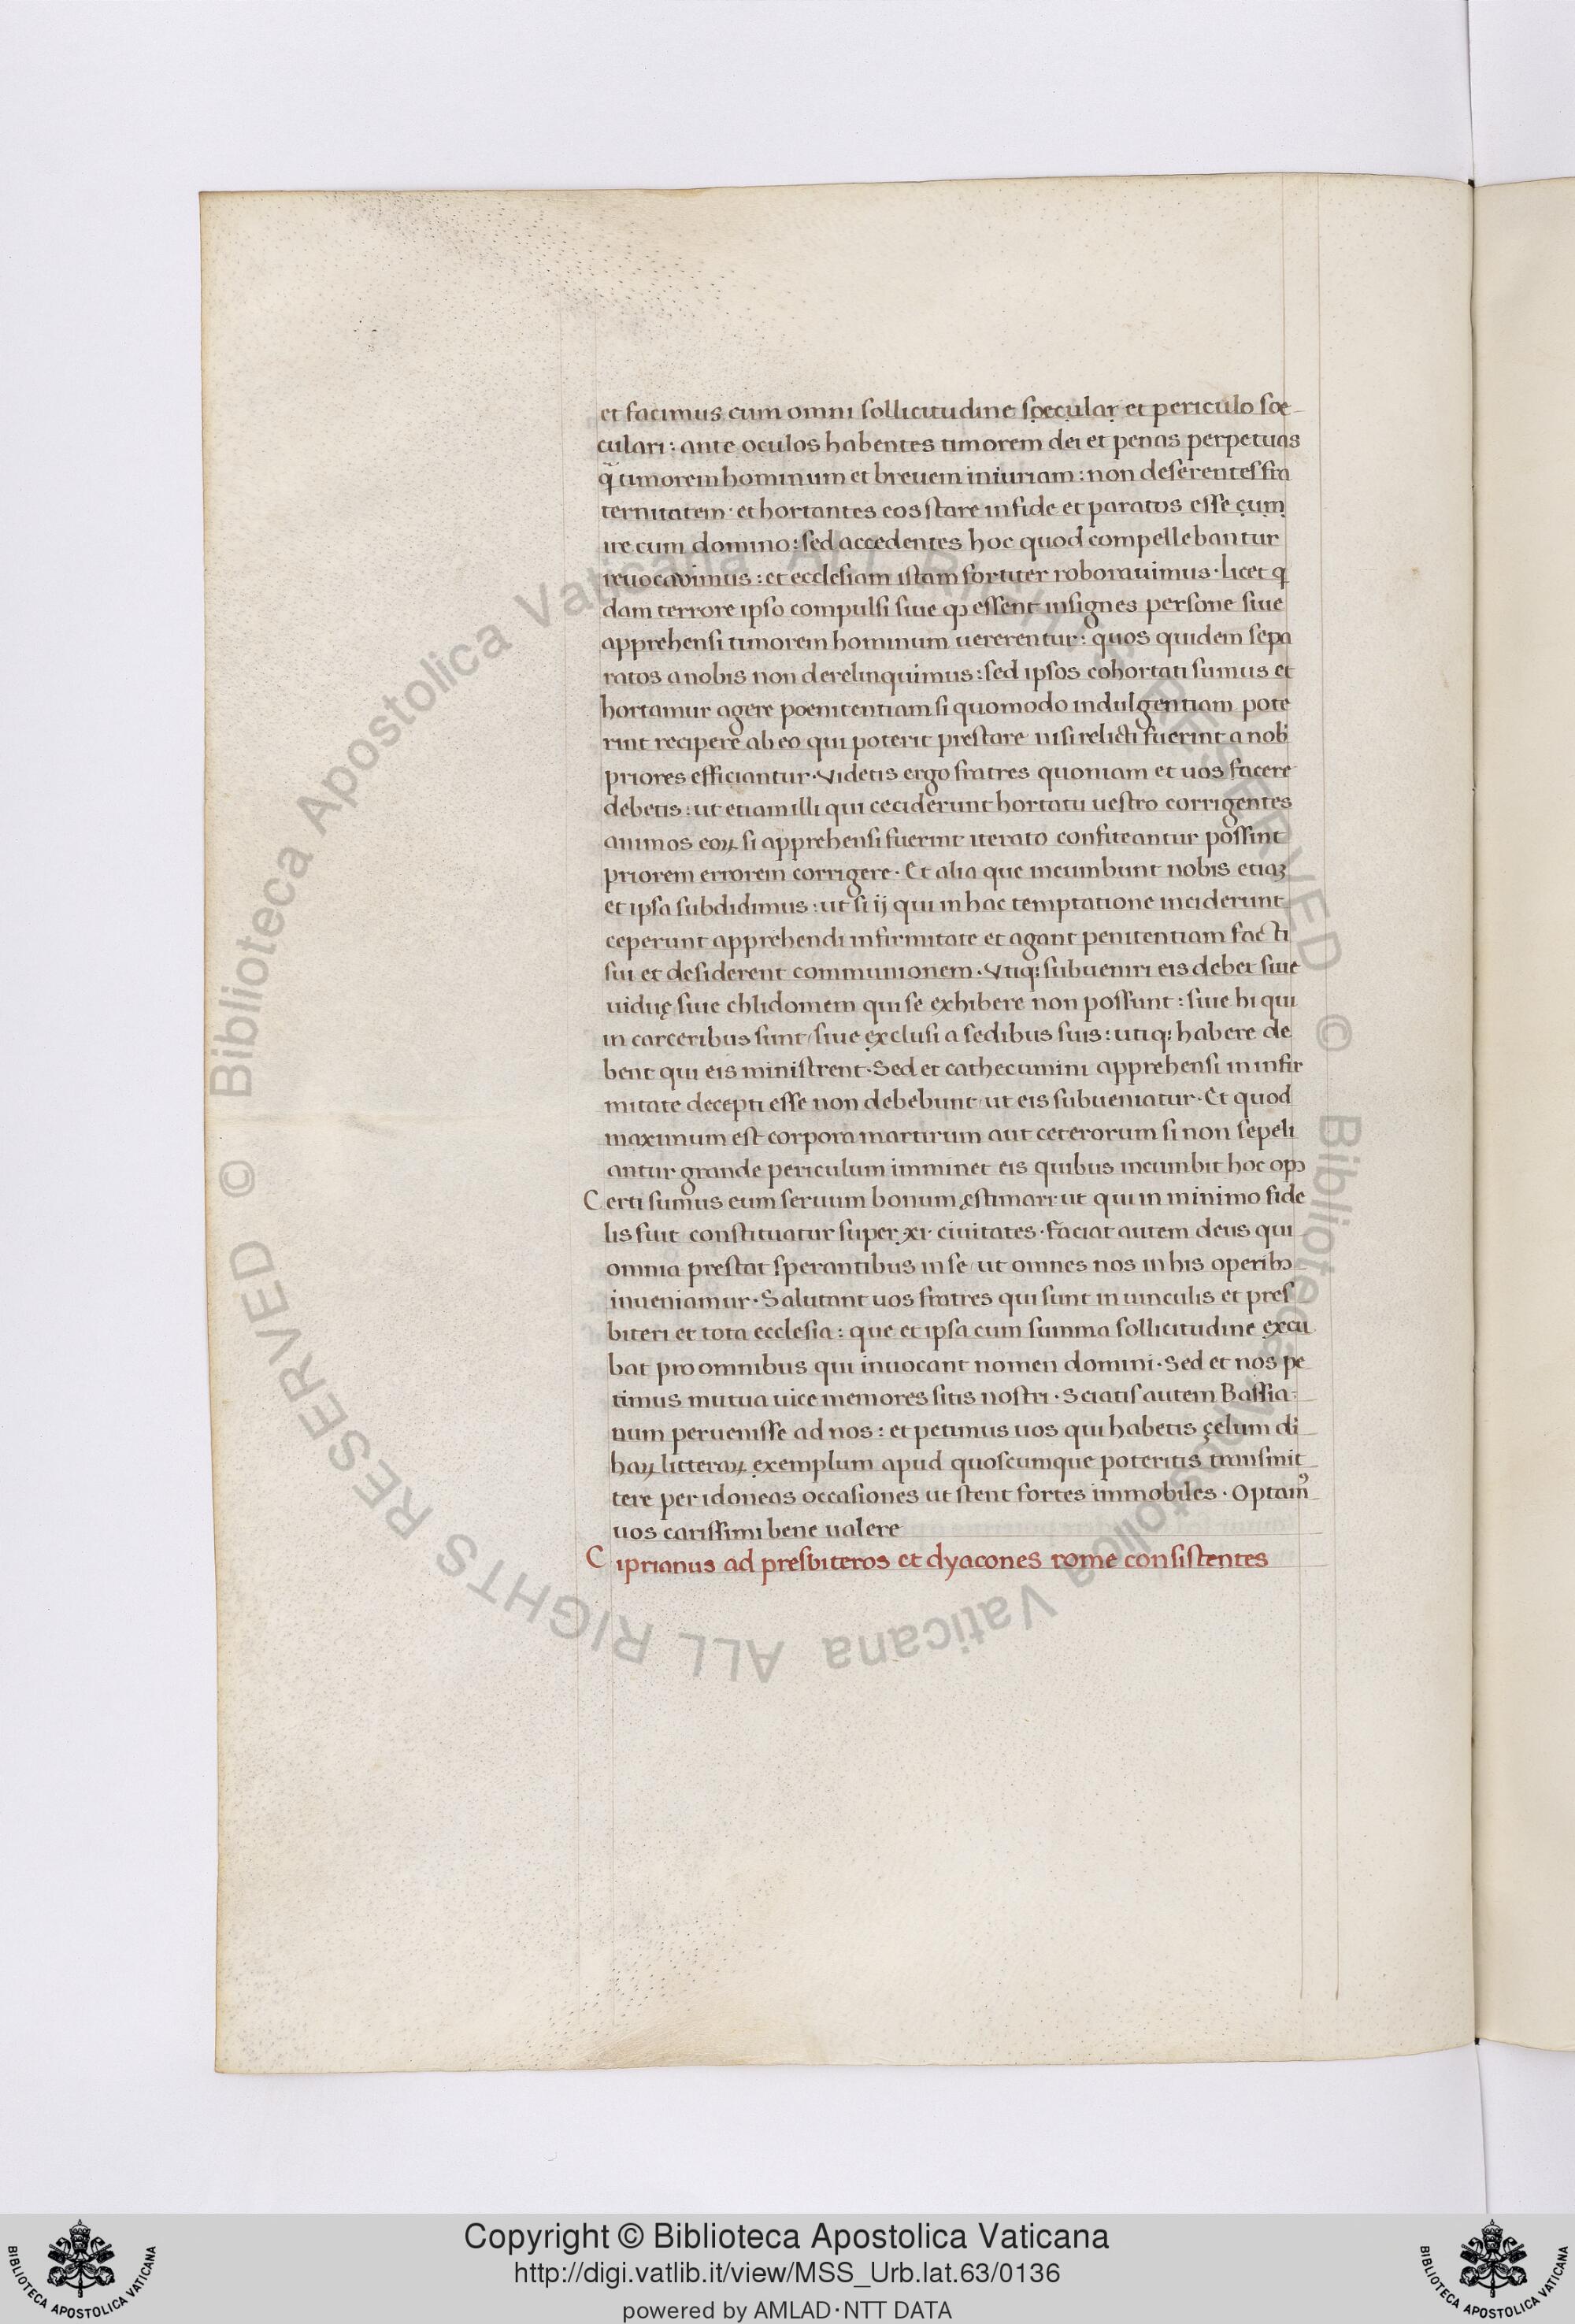 et facimus cum omni sollicitudine sp̣ecular̦ et periculo soe
culari: ante oculos habentes timorem dei et penas perpetuas
q̃ timorem hominum et breuem iniuriam: non deserentes fra
ternitatem· et hortantes eos stare in fide et paratos esse c̣ụṃ
ire cum domino: sed accedentes hoc quod compellebantur
reuocauimus: et ecclesiam istam fortiter roborauimus· licet q
dam terrore ipso compulsi siue ꝙ essent insignes persone siue
apprehensi timorem hominum uererentur: quos quidem sepa
ratos a nobis non derelinquimus: sed ipsos cohortati sumus et
hortamur agere poenitentiam si quomodo indulgentiam pote
rint recipere ab eo qui poterit prestare nisi relicti fuerint a nob̄
priores efficiantur· Videtis ergo fratres quoniam et uos facere
debetis: ut etiam illi qui ceciderunt hortatu uestro corrigentes
animos eoꝝ si apprehensi fuerint iterato confiteantur possint
priorem errorem corrigere· Et alia que incumbunt nobis etiaꝫ
et ipsa subdidimus: ut si ij qui in hac temptatione inciderunt
ceperunt apprehendi infirmitate et agant penitentiam facti
sui et desiderent communionem· Vtiq; subueniri eis debet siue
uiduę siue chlidomem qui se exhibere non possunt: siue hi qui
in carceribus sunt/ siue exclusi a sedibus suis: utiq; habere de
bent qui eis ministrent· Sed et cathecumini apprehensi in infir
mitate decepti esse non debebunt/ ut eis subueniatur· Et quod
maximum est corpora martirum aut ceterorum si non sepeli
antur grande periculum imminet eis quibus incumbit hoc opꝰ
Certi sumus eum seruum bonum ęstimari: ut qui in minimo fide
lis fuit constituatur super xi· ciuitates· faciat autem deus qui
omnia prestat sperantibus in se/ ut omnes nos in his operibꝰ
inueniamur· Salutant uos fratres qui sunt in uinculis et pres
biteri et tota ecclesia: que et ipsa cum summa sollicitudine excu
bat pro omnibus qui inuocant nomen domini· Sed et nos pe
timus mutua uice memores sitis nostri· Sciatis autem Bassia
num peruenisse ad nos: et petimus uos qui habetis çelum di
haꝝ litteraꝝ exemplum apud quoscumque poteritis transmit
tere per idoneas occasiones ut stent fortes immobiles· Optamꝰ
uos carissimi bene ualere
Ciprianus ad presbiteros et dyacones rome consistentes
© Biblioteca Apostolica Vaticana ALL RIGHTS RESERVED © Biblioteca Apostolica Vaticana ALL RIGHTS RESERVED
BIBLIOTECA APOSTOLICA VATICANA
Copyright © Biblioteca Apostolica Vaticana
http://digi.vatlib.it/view/MSS_Urb.lat.63/0136
powered by AMLAD·NTT DATA
BIBLIOTECA APOSTOLICA VATICANA